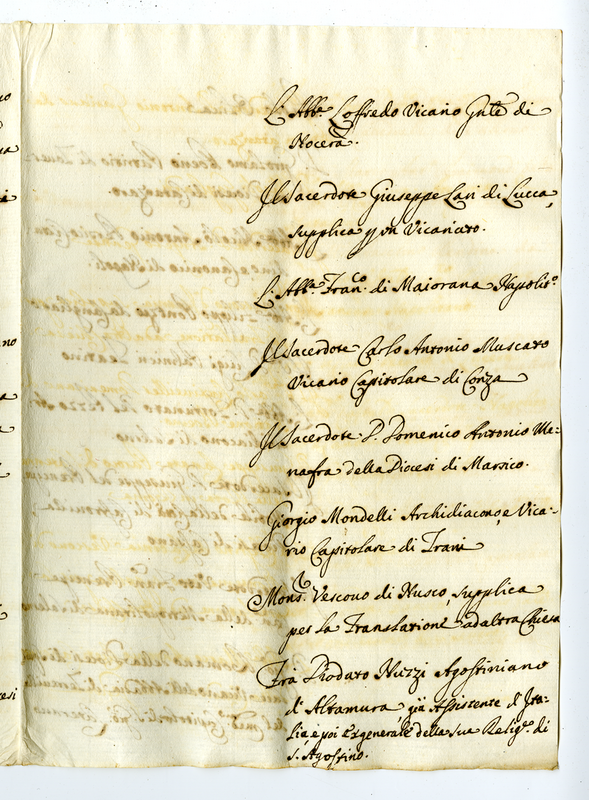 L'Abb.e Loffredo Vicario Gnle di
Nocera.
Il Sacerdote Giuseppe Lari di Lucca,
supplica p un Vicariato.
L'Abb.e Fran.co di Maiorana Napolit.o
Il Sacerdote Carlo Antonio Muscato
Vicario Capitolare di Conza
Il Sacerdote D. Domenico Antonio Ma=
nafra della Diocesi di Marsico.
Giorgio Mondelli Archidiacono, e Vica=
rio Capitolare di Trani
Mons.r Vescovo di Nusco, supplica
per la Translatione ad altra Chiesa
Fra Diodato Nuzzi Agostiniano
d'Altamura, già Assistente d'Ita=
lia, e poi Exgenerale della sua Relig.e di
S. Agostino.